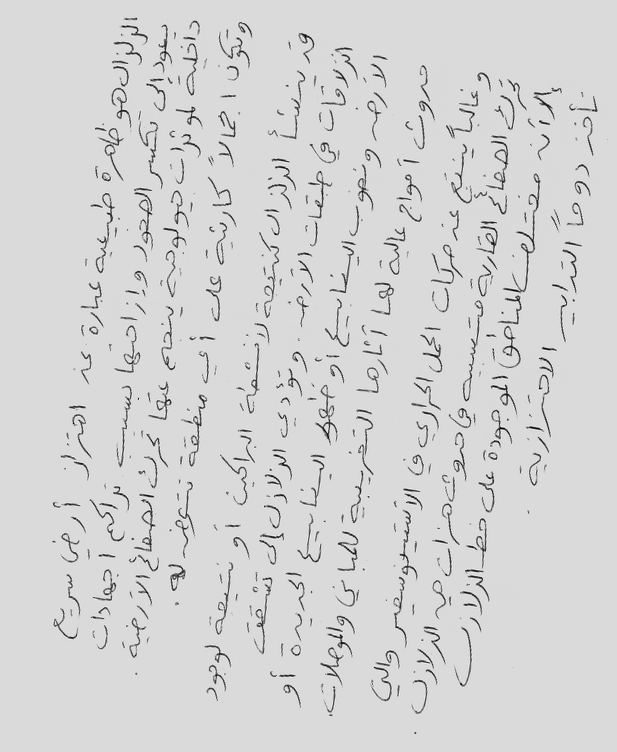 الزلزال هو ظاهرة طبيعية عبارة عن اهتزاز أرضي سريع
يعود إلى تكسر الصخور وإزاحتها بسبب تراكم اجهادات
داخلية لمؤثرات جيولوجية ينجم عنها تحرك الصفائح الأرضية.
وتكون اجمالاً كارثية على أي منطقة تتعرض له.
قد ينشأ الزلزال كنتيجة لأنشطة البراكين أو نتيجة لوجود
انزلاقات في طبقات الأرض. وتؤدي الزلازل إلى تشقق
الأرض ونضوب الينابيع أو ظهور الينابيع الجديدة أو
حدوث أمواج عالية لها آثارها التخريبية للمباني والموصلات.
وغالباً ينتج عن حركات الحمل الحراري في الأستينوسفير والتي
تحرك الصفائح القارية متسببة في حدوث هزات هي الزلازل.
ألا أنه مختلف المناطق الموجودة على خط الزلازل
تأخذ دوماً التدابير الاحترازية.